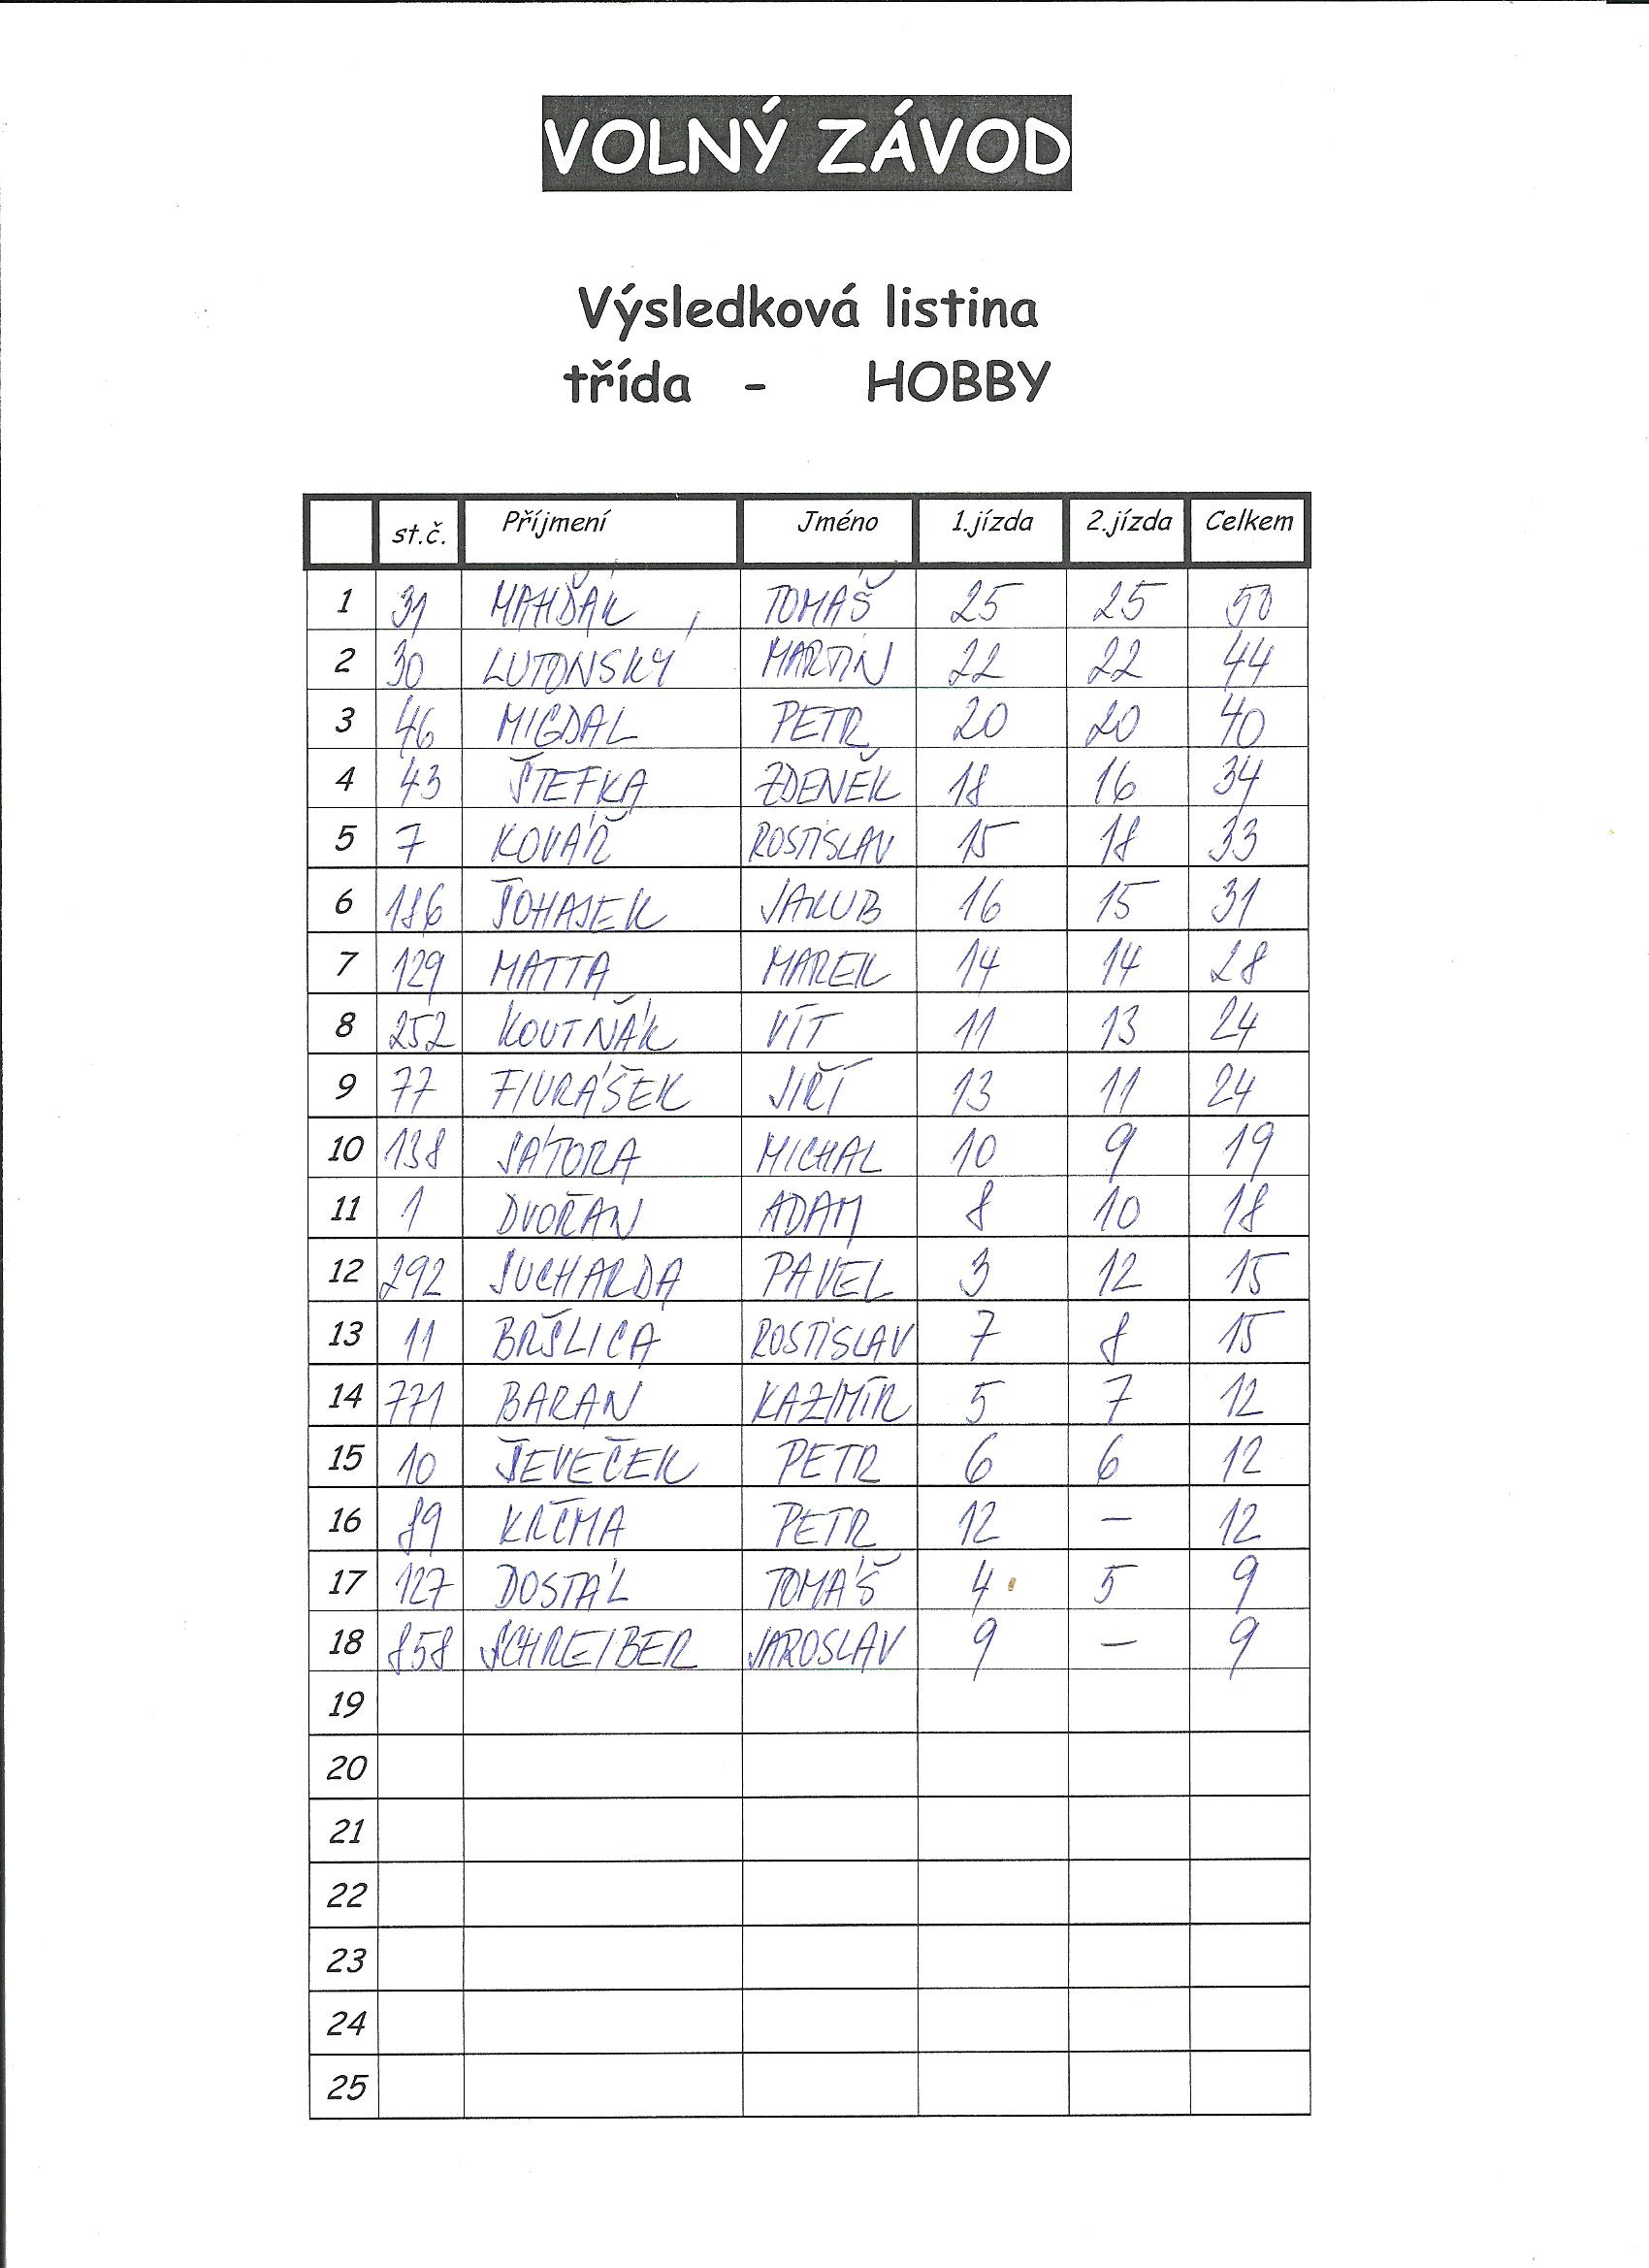 VOLNÝ ZÁVOD
Výsledková listina
třída - HOBBY
st.č. Příjmení Jméno 1.jízda 2.jízda Celkem
1 31 MAHĎÁK TOMÁŠ 25 25 50
2 30 LUTONSKÝ MARTIN 22 22 44
3 46 MIGDAL PETR 20 20 40
4 43 ŠTEFKA ZDENĚK 18 16 34
5 7 KOVÁŘ ROSTISLAV 15 18 33
6 186 JAKUB 16 15 31
7 129 MATTA MAREK 14 14 28
8 252 KOUTŇÁK VÍT 11 13 24
9 77 FIURÁŠEK JIŘÍ 13 11 24
10 138 SÁTORA MICHAL 10 9 19
11 1 DVOŘAN ADAM 8 10 18
12 292 SUCHARDA PAVEL 3 12 15
13 11 BRŠLICA ROSTISLAV 7 8 15
14 771 BARAN KAZIMÍR 5 7 12
15 10 ŠEVEČEK PETR 6 6 12
16 89 KRČMA PETR 12 – 12
17 127 DOSTÁL TOMÁŠ 4 5 9
18 858 SCHREIBER JAROSLAV 9 – 9
19
20
21
22
23
24
25